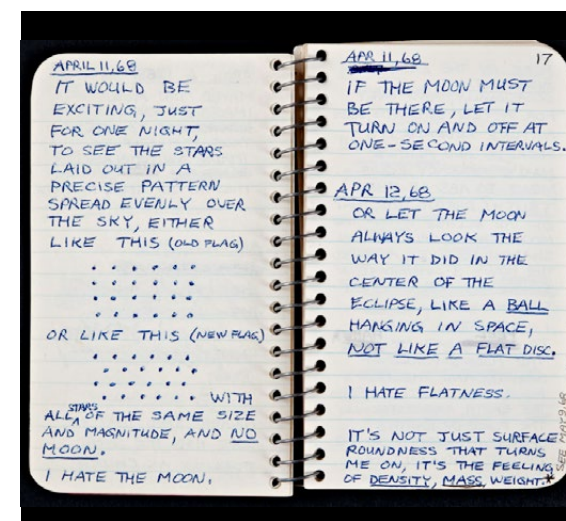 APRIL 11, 68
IT WOULD BE
EXCITING, JUST
FOR ONE NIGHT,
TO SEE THE STARS
LAID OUT IN A
PRECISE PATTERN
SPREAD EVENLY OVER
THE SKY, EITHER
LIKE THIS (OLD FLAG)
OR LIKE THIS (NEW FLAG)
WITH
ALL STARS OF THE SAME SIZE
AND MAGNITUDE, AND NO
MOON.
I HATE THE MOON.
APR 11, 68
17
IF THE MOON MUST
BE THERE, LET IT
TURN ON AND OFF AT
ONE-SECOND INTERVALS.
APR 12, 68
OR LET THE MOON
ALWAYS LOOK THE
WAY IT DID IN THE
CENTER OF THE
ECLIPSE, LIKE A BALL
HANGING IN SPACE,
NOT LIKE A FLAT DISC.
I HATE FLATNESS.
IT'S NOT JUST SURFACE
ROUNDNESS THAT TURNS
ME ON, IT'S THE FEELING
OF DENSITY, MASS, WEIGHT.*
SEE MAY 9, 68